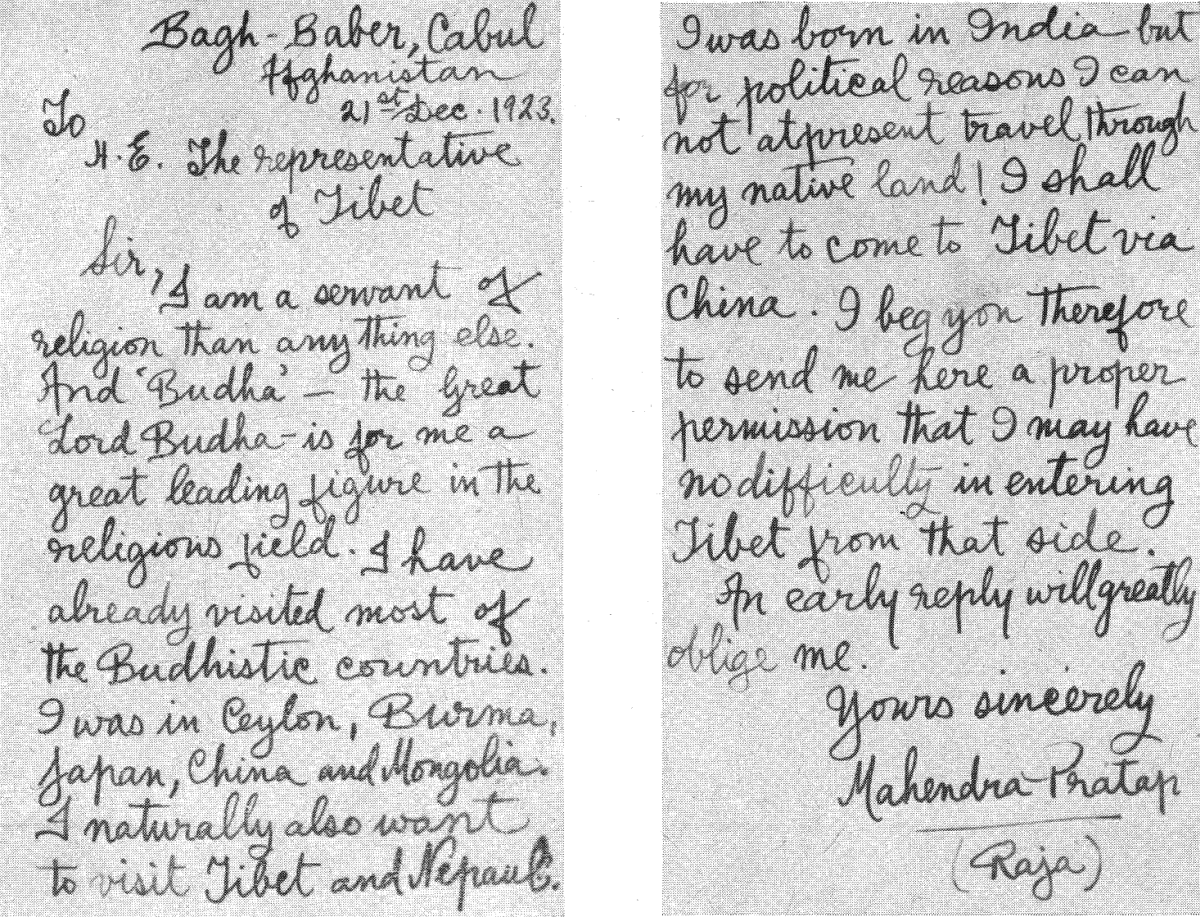 Bagh-Baber, Cabul
Afghanistan
21st Dec. 1923.
To
H.E. The representative
of Tibet
Sir,
I am a servant of
religion than any thing else.
And 'Budha' — the Great
Lord Budha - is for me a
great leading figure in the
religious field. I have
already visited most of
the Budhistic countries.
I was in Ceylon, Burma,
Japan, China and Mongolia.
I naturally also want
to visit Tibet and Nepaul.
I was born in India but
for political reasons I can
not at present travel through
my native land! I shall
have to come to Tibet via
China. I beg you therefore
to send me here a proper
permission that I may have
no difficulty in entering
Tibet from that side.
An early reply will greatly
oblige me.
Yours sincerely
Mahendra Pratap
(Raja)